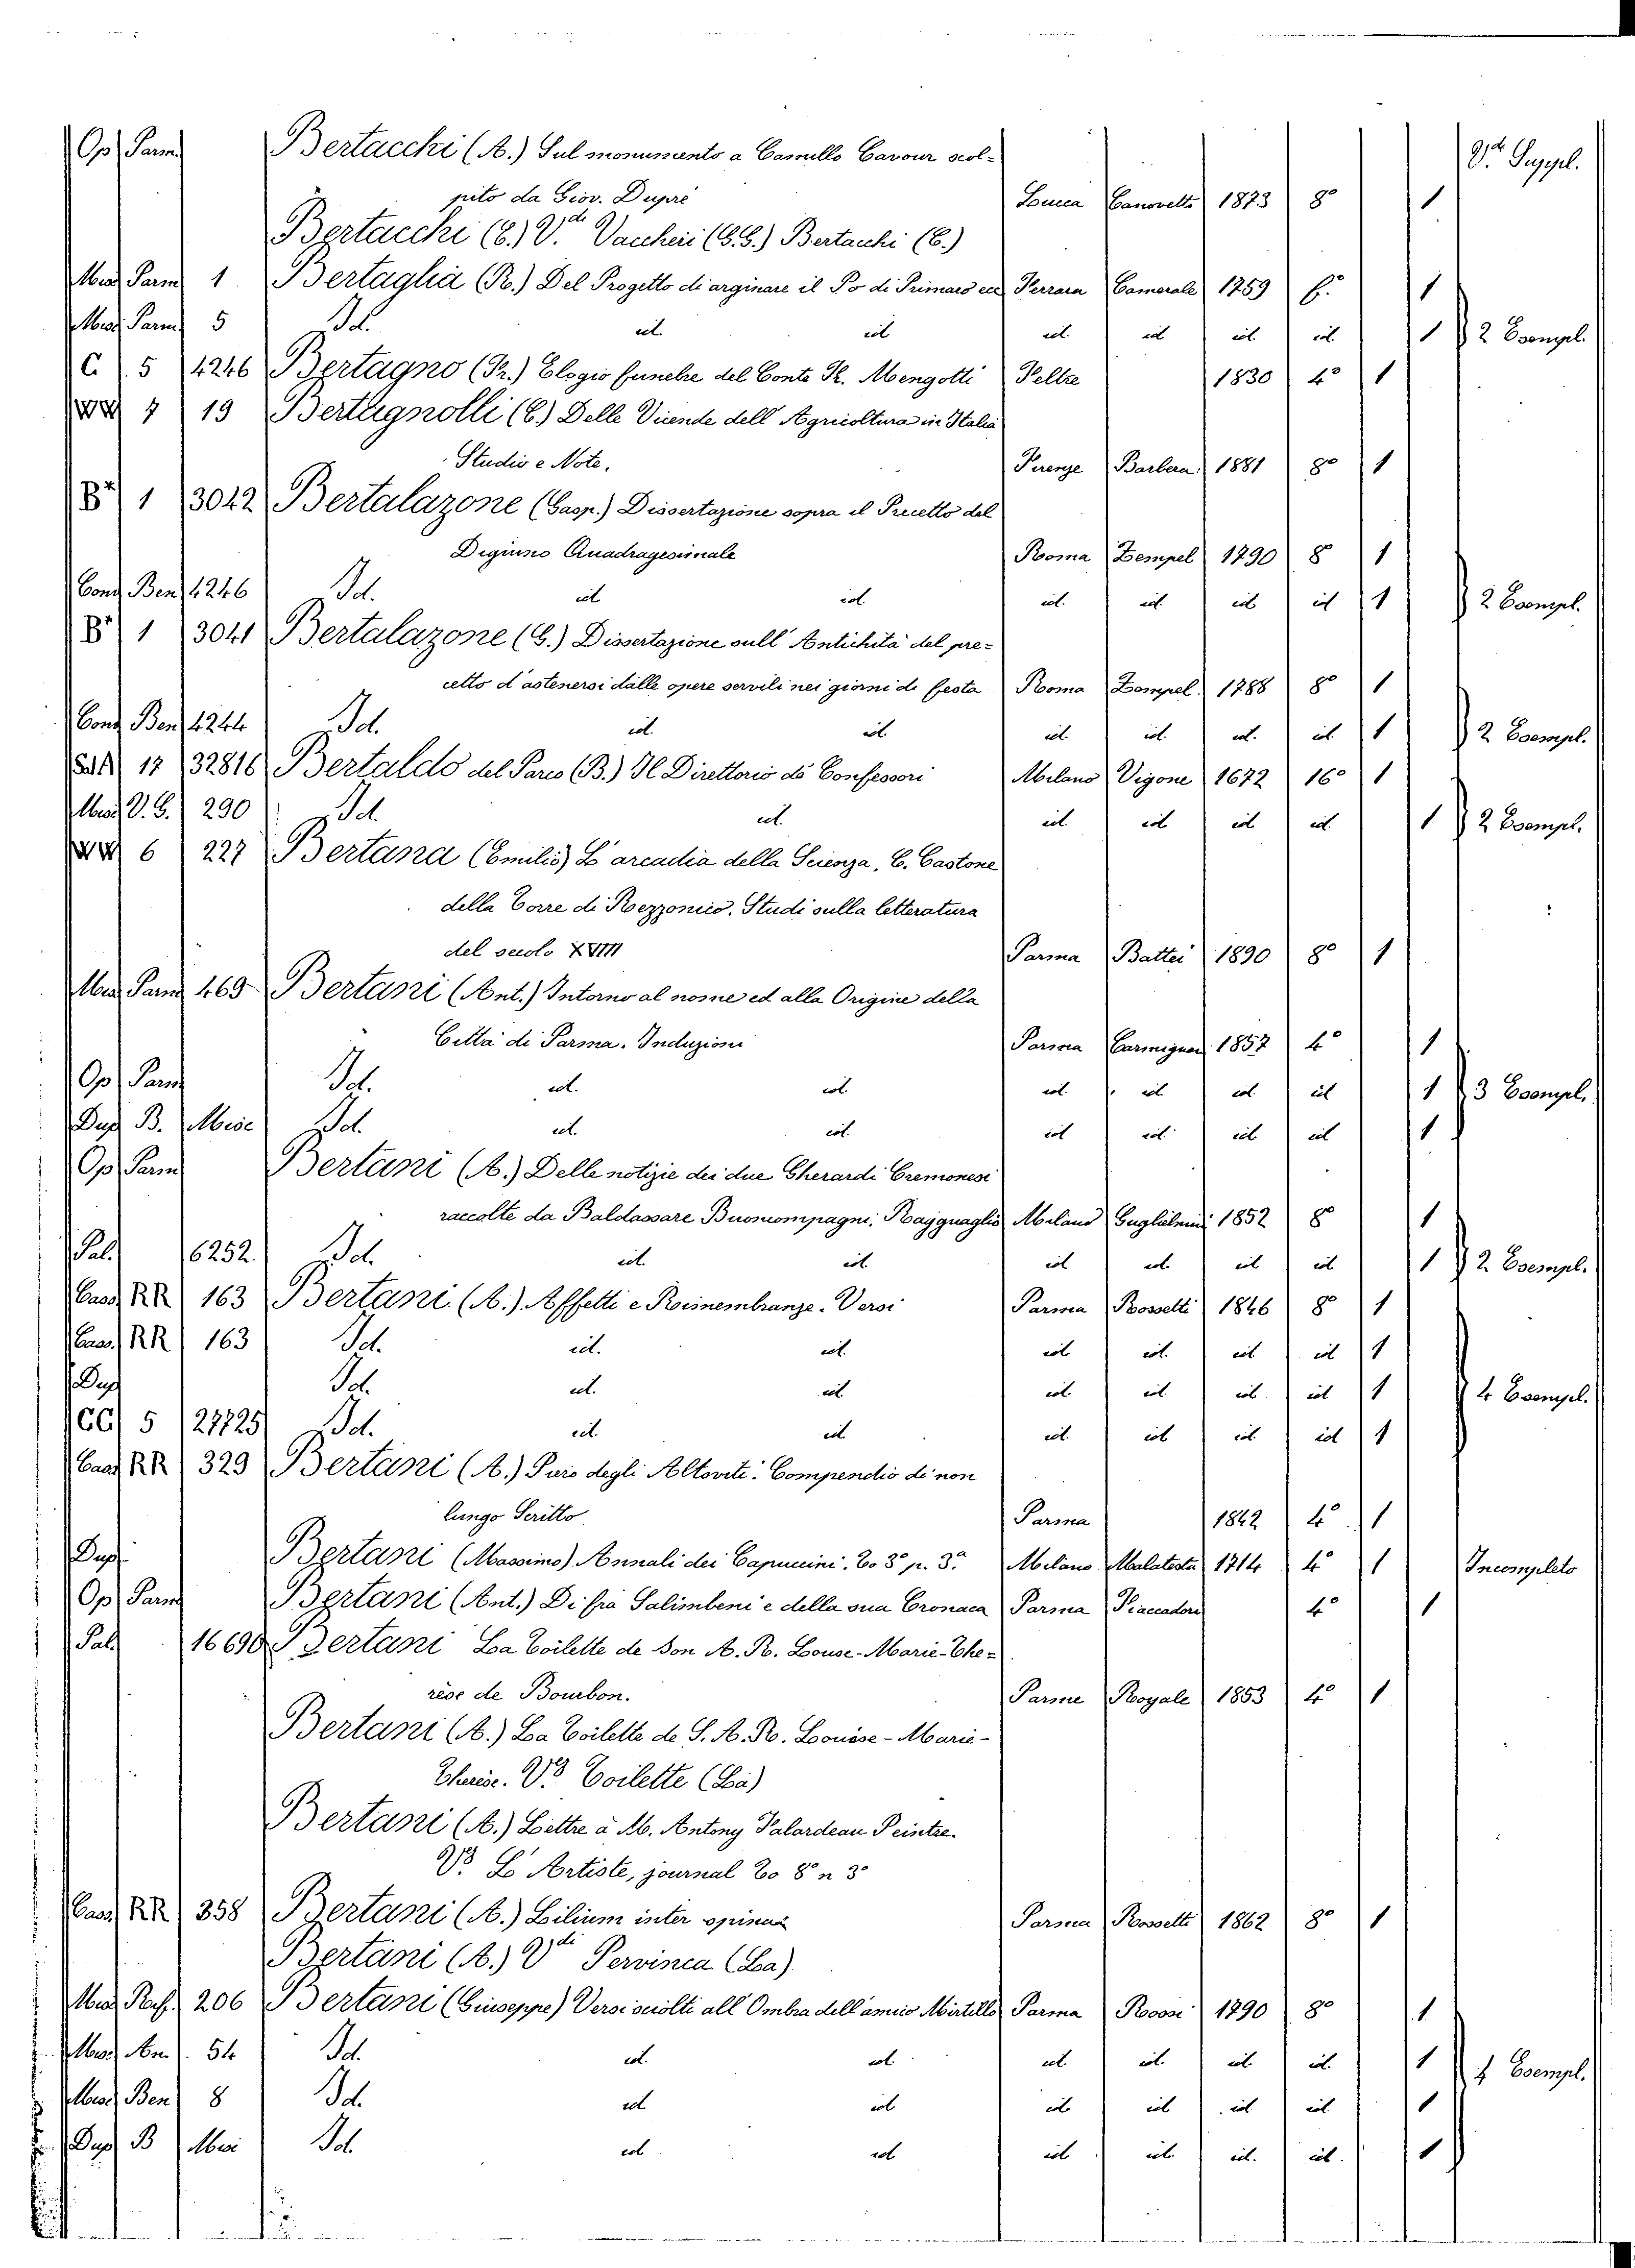 Op. Parm. Bertacchi (A.) Sul monumento a Camillo Cavour scol= Vdi Suppl.
pito da Giov. Duprè Lucca Canovetti 1873 8º 1
Bertacchi (C.) Vdi Vaccheri (G.G.) Bertacchi (C.)
Misc. Parm. 1 Bertaglia (R.) Del Progetto di arginare il Po di Primaro ecc Ferrara Camerale 1769 f. 1
Misc. Parm. 5 Id. id. id. id. id id. id. 1 2 Esempl.
C 5 4246 Bertagno (Fr.) Elogio funebre del Conte Fr. Mengotti Feltre 1830 4º 1
7 19 Bertagnolli (C.) Delle Vicende dell' Agricoltura in Italia
Studio e Note. Firenze Barbera 1881 8º 1
1 3042 Bertalazone (Gasp.) Dissertazione sopra il Precetto del
Digiuno Quadragesimale Roma Zempel 1790 8 1
Conv. Ben. 4246 Id. id. id. id. id. id id 1 2 Esempl.
1 3041 Bertalazone (G.) Dissertazione sull' Antichità del pre=
cetto d'astenersi dalle opere servili nei giorni di festa Roma Zempel 1788 8º 1
Conv. Ben. 4244 Id. id. id. id. id. id. id. 1 2 Esempl.
17 32816 Bertaldo del Parco (B.) Il Direttorio de Confessori Milano Vigone 1672 16º 1
Misc. V. G. 290 Id. id. id. id id id. 1 2 Esempl.
6 227 Bertana (Emilio) L'arcadia della Scienza, C. Castone
della Torre di Rezzonico. Studi sulla letteratura
del secolo XVIII Parma Battei 1890 8º 1
Misc. Parm. 469 Bertani (Ant.) Intorno al nome ed alla Origine della
Città di Parma. Induzioni Parma Carmignani 1857 4º 1
Op. Parm. Id. id. id. id. id. id. id 1 3 Esempl.
Dup. B. Misc Id. id. id. id id. id. id 1
Op. Parm. Bertani (A.) Delle notizie dei due Gherardi Cremonesi
raccolte da Baldassare Buoncompagni, Ragguaglio Milano Guglielmini 1852 8 1
Pal. 6252. Id. id. id. id id. id id 1 2 Esempl.
Cass. RR 163 Bertani (A.) Affetti e Rimembranze. Versi Parma Rossetti 1846 8 1
Cass. RR 163 Id. id. id. id id. id id 1
Dup. Id. id. id id. id. id. id 1 4 Esempl.
CC 5 27725 Id. id. id id. id id. id 1
Cass. RR 329 Bertani (A.) Piro degli Altoviti. Compendio di non
lungo Scritto Parma 1842 4º 1
Dup. Bertani (Massimo) Annali dei Capuccini. To 3º p. 3ª Milano Malatesta 1714 4º 1 Incompleto
Op. Parm. Bertani (Ant.) Di fra Salimbene e della sua Cronaca Parma Fiaccadori 4º 1
Pal. 16690 Bertani La Toilette de Son A. R. Louse-Marie-The=
rèse de Bourbon. Parme Royale 1853 4º 1
Bertani (A.) La Toilette de S. A. R. Louise-Marie-
Therèse. Vdi Toilette (La)
Bertani (A.) Lettre à M. Antony Palardeau Peintre.
Vdi L'Artiste, journal To 8º n 3º
Cass. RR 358 Bertani (A.) Lilium inter spinas Parma Rossetti 1862 8º 1
Bertani (A.) Vdi Pervinca (La)
Misc. 206 Bertani (Giuseppe) Versi sciolti all' Ombra dell'amico Mirtillo Parma Rossi 1790 8º 1
Misc. 54 Id. id. id. id. id. id. id. 1 4 Esempl.
Misc. Ben 8 Id. id id id id id id. 1
Dup. B Misc Id. id id id id. id. id. 1